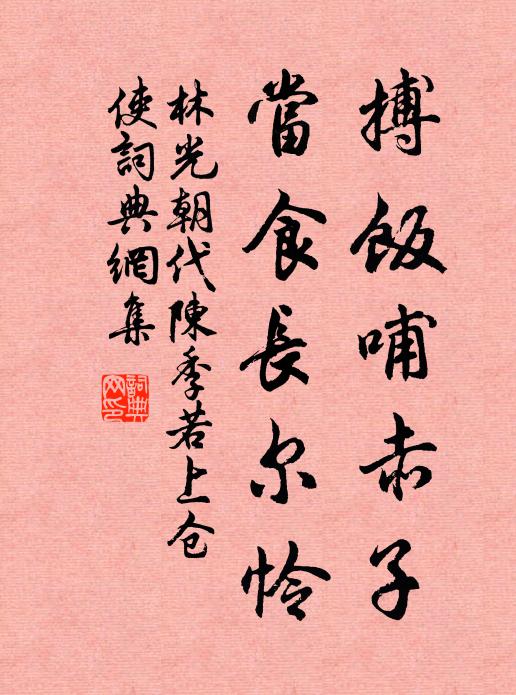 搏飯哺赤子
當食長尔怜
林光朝代陳季若上仓
使詞典網集
詞典
网印